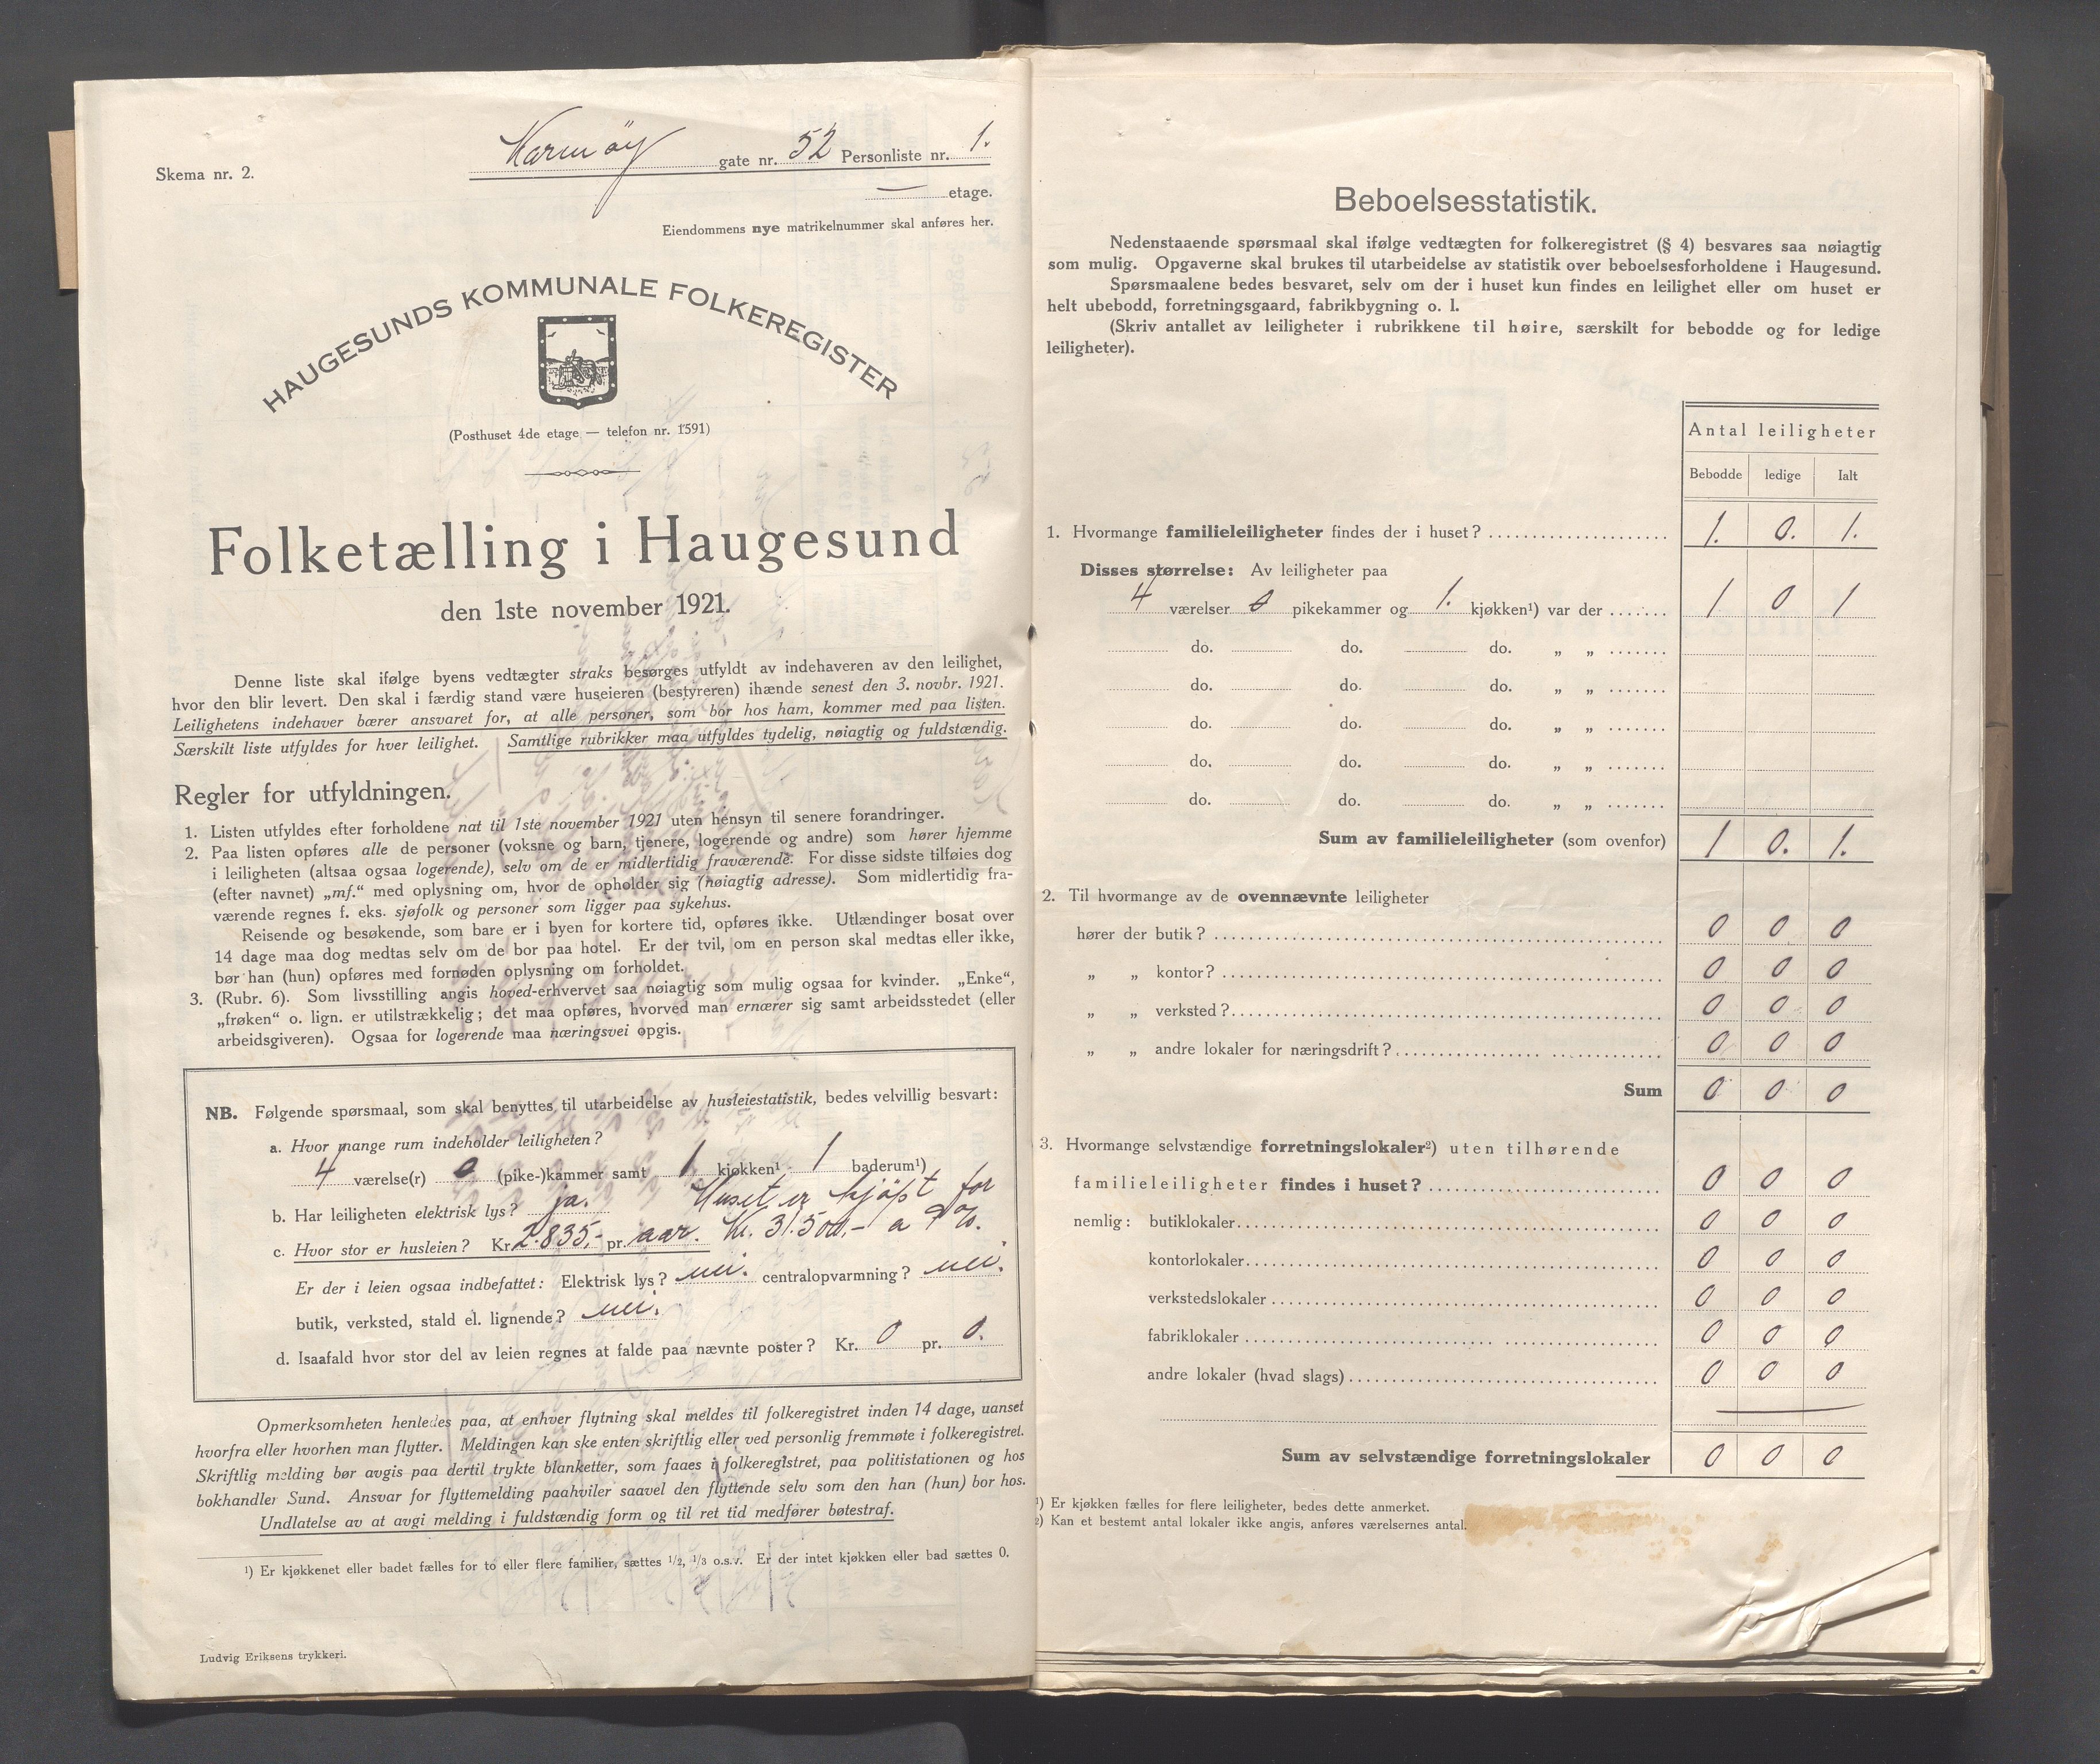 Skema nr. 2.
Karmøy gate nr. 52 Personliste nr. 1.
— etage.
Eiendommens nye matrikelnummer skal anføres her.
HAUGESUNDS KOMMUNALE FOLKEREGISTER
(Posthuset 4de etage — telefon nr. 1591)
Folketælling i Haugesund
den 1ste november 1921.
Denne liste skal ifølge byens vedtægter straks besørges utfyldt av indehaveren av den leilighet,
hvor den blir levert. Den skal i færdig stand være huseieren (bestyreren) ihænde senest den 3. novbr. 1921.
Leilighetens indehaver bærer ansvaret for, at alle personer, som bor hos ham, kommer med paa listen.
Særskilt liste utfyldes for hver leilighet. Samtlige rubrikker maa utfyldes tydelig, nøiagtig og fuldstændig.
Regler for utfyldningen.
1. Listen utfyldes efter forholdene nat til 1ste november 1921 uten hensyn til senere forandringer.
2. Paa listen opføres alle de personer (voksne og barn, tjenere, logerende og andre) som hører hjemme
i leiligheten (altsaa ogsaa logerende), selv om de er midlertidig fraværende. For disse sidste tilføies dog
(efter navnet) „mf.“ med oplysning om, hvor de opholder sig (nøiagtig adresse). Som midlertidig fra-
værende regnes f. eks. sjøfolk og personer som ligger paa sykehus.
Reisende og besøkende, som bare er i byen for kortere tid, opføres ikke. Utlændinger bosat over
14 dage maa dog medtas selv om de bor paa hotel. Er der tvil, om en person skal medtas eller ikke,
bør han (hun) opføres med fornøden oplysning om forholdet.
3. (Rubr. 6). Som livsstilling angis hoved-erhvervet saa nøiagtig som mulig ogsaa for kvinder. „Enke“,
„frøken“ o. lign. er utilstrækkelig; det maa opføres, hvorved man ernærer sig samt arbeidsstedet (eller
arbeidsgiveren). Ogsaa for logerende maa næringsvei opgis.
NB. Følgende spørsmaal, som skal benyttes til utarbeidelse av husleiestatistik, bedes velvillig besvart:
a. Hvor mange rum indeholder leiligheten?
4 værelse(r) 0 (pike-)kammer samt 1 kjøkken¹ 1 baderum¹)
b. Har leiligheten elektrisk lys? ja. Huset er kjøpt for
c. Hvor stor er husleien? Kr. 2.835,- pr. aar. Kr. 31.500,- a 9 %.
Er der i leien ogsaa indbefattet: Elektrisk lys? nei. centralopvarmning? nei.
butik, verksted, stald el. lignende? nei.
d. Isaafald hvor stor del av leien regnes at falde paa nævnte poster? Kr. 0 pr. 0.
Opmerksomheten henledes paa, at enhver flytning skal meldes til folkeregistret inden 14 dage, uanset
hvorfra eller hvorhen man flytter. Meldingen kan ske enten skriftlig eller ved personlig fremmøte i folkeregistret.
Skriftlig melding bør avgis paa dertil trykte blanketter, som faaes i folkeregistret, paa politistationen og hos
bokhandler Sund. Ansvar for flyttemelding paahviler saavel den flyttende selv som den han (hun) bor hos.
Undlatelse av at avgi melding i fuldstændig form og til ret tid medfører bøtestraf.
¹) Er kjøkkenet eller badet fælles for to eller flere familier, sættes 1/2, 1/3 o.s.v. Er der intet kjøkken eller bad sættes 0.
Ludvig Eriksens trykkeri.
Beboelsesstatistik.
Nedenstaaende spørsmaal skal ifølge vedtægten for folkeregistret (§ 4) besvares saa nøiagtig
som mulig. Opgaverne skal brukes til utarbeidelse av statistik over beboelsesforholdene i Haugesund.
Spørsmaalene bedes besvaret, selv om der i huset kun findes en leilighet eller om huset er
helt ubebodd, forretningsgaard, fabrikbygning o. l.
(Skriv antallet av leiligheter i rubrikkene til høire, særskilt for bebodde og for ledige
leiligheter).
Antal leiligheter
Bebodde ledige Ialt
1. Hvormange familieleiligheter findes der i huset? 1. 0. 1.
Disses størrelse: Av leiligheter paa
4 værelser 0 pikekammer og 1. kjøkken¹) var der 1 0 1
do. do. do. „ „
do. do. do. „ „
do. do. do. „ „
do. do. do. „ „
do. do. do. „ „
Sum av familieleiligheter (som ovenfor) 1 0. 1.
2. Til hvormange av de ovennævnte leiligheter
hører der butik? 0 0 0
„ „ kontor? 0 0 0
„ „ verksted? 0 0 0
„ „ andre lokaler for næringsdrift? 0 0 0
Sum 0 0 0
3. Hvormange selvstændige forretningslokaler²) uten tilhørende
familieleiligheter findes i huset? 0 0 0
nemlig: butiklokaler 0 0 0
kontorlokaler 0 0 0
verkstedslokaler 0 0 0
fabriklokaler 0 0 0
andre lokaler (hvad slags) 0 0 0
Sum av selvstændige forretningslokaler 0 0 0
¹) Er kjøkken fælles for flere leiligheter, bedes dette anmerket.
²) Kan et bestemt antal lokaler ikke angis, anføres værelsernes antal.